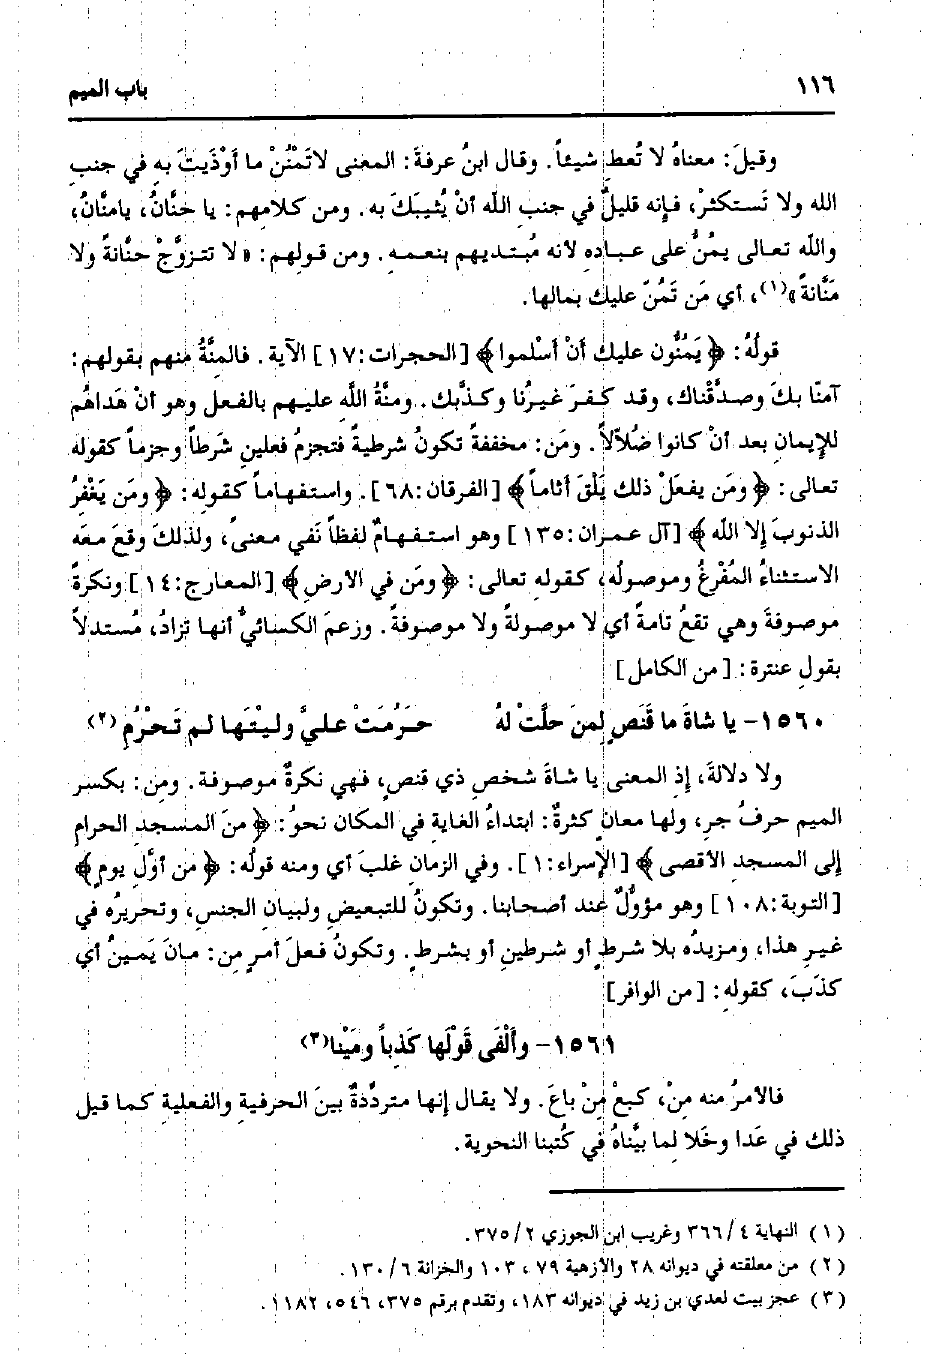 ١١٦
باب الميم
وقيلَ: معناهُ لا تُعطِ شيئاً. وقال ابنُ عرفةَ: المعنى لاتَمْنُنْ ما أَوْذَيتَ بهِ في جنبِ
الله ولا تَستكثرْ، فإنه قليلٌ في جنبِ اللَّه أنْ يُثيبَكَ به. ومن كلامهم: يا حَنَّانُ، يامنَّانُ،
واللَّه تعالى يمُنُّ على عبادهِ لانه مُبتديهم بنعمه. ومن قولهم: «لا تتزوَّجْ حنَّانةً ولا
مَنَّانةً»(١)، أي مَن تَمُنّ عليك بمالها.
قولُهُ: ﴿يَمُنُّون عليك أنْ أسْلموا﴾ [الحجرات:١٧] الآية. فالمِنَّةُ منهم بقولهم:
آمنّا بكَ وصدَّقْناك، وقد كفرَ غيرُنا وكذَّبك. ومنَّةُ اللَّهِ عليهم بالفعل وهو أنْ هَداهُم
للإيمانِ بعد أنْ كانوا ضُلاّلاً. ومَن: مخففةً تكونُ شرطيةً فتجزمُ فعلينِ شَرطاً وجزماً كقوله
تعالى: ﴿ومَن يفعلْ ذلك يَلْقَ أثاماً﴾ [الفرقان:٦٨]. واستفهاماً كقوله: ﴿ومَن يَغْفرُ
الذنوبَ إلا اللَّه﴾ [آل عمران:١٣٥] وهو استفهامٌ لفظاً نَفي معنىً، ولذلكَ وقعَ معَه
الاستثناءُ المُفْرغُ وموصولُه، كقوله تعالى: ﴿ومَن في الارضِ﴾ [المعارج:١٤] ونكرةً
موصوفةَ وهي تقعُ تامةً أي لا موصولةً ولا موصوفةً. وزعمَ الكسائيُّ أنها تزادُ، مُستدلاً
بقولِ عنترة: [من الكامل]
١٥٦٠- يا شاةَ ما قَنَصٍ لِمنَ حلَّتْ لهُ حَرُمَتْ عليَّ وليْتَها لم تَحْرُمِ (٢)
ولا دلالةَ، إذِ المعنى يا شاةَ شخصٍ ذي قنصٍ، فهي نكرةٌ موصوفة. ومِن: بكسر
الميم حرفُ جرٍ، ولها معانٍ كثرةٌ: ابتداءُ الغاية في المكان نحوُ: ﴿منَ المسجدِ الحرام
إلى المسجدِ الاقصى﴾ [الإسراء:١]. وفي الزمانِ غلبَ أي ومنه قولُه: ﴿من أوّلِ يومٍ﴾
[التوبة:١٠٨] وهو مؤوّلٌ عند أصحابنا. وتكونُ للتبعيضِ ولبيانِ الجنسِ، وتحريرُه في
غيرِ هذا، ومزيدُه بلا شرطٍ أو شرطينِ أو بشرطٍ. وتكون فعلَ أمرٍ مِن: مانَ يَمينُ أي
كذَبَ، كقولهِ: [من الوافر]
١٥٦١- وأَلْفَى قَوْلَها كَذِباً ومَيْنا(٣)
فالأمرُ منه مِنْ، كبِعْ مِنْ باعَ. ولا يقال إنها متردّدةٌ بينَ الحرفيةِ والفعلية كما قيل
ذلك في عَدا وخَلا لِما بيَّناهُ في كُتبنا النحوية.
(١) النهاية ٤/ ٣٦٦ وغريب ابن الجوزي ٢/ ٣٧٥.
(٢) من معلقته في ديوانه ٢٨ والأزهية ٧٩، ١٠٣ والخزانة ٦/ ١٣٠.
(٣) عجز بيت لعدي بن زيد في ديوانه ١٨٣، وتقدم برقم ٣٧٥، ٥٤٦، ١١٨٢.